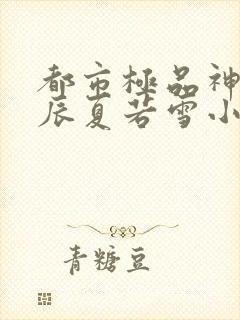 都市極品神
辰夏若雪小
青糖豆